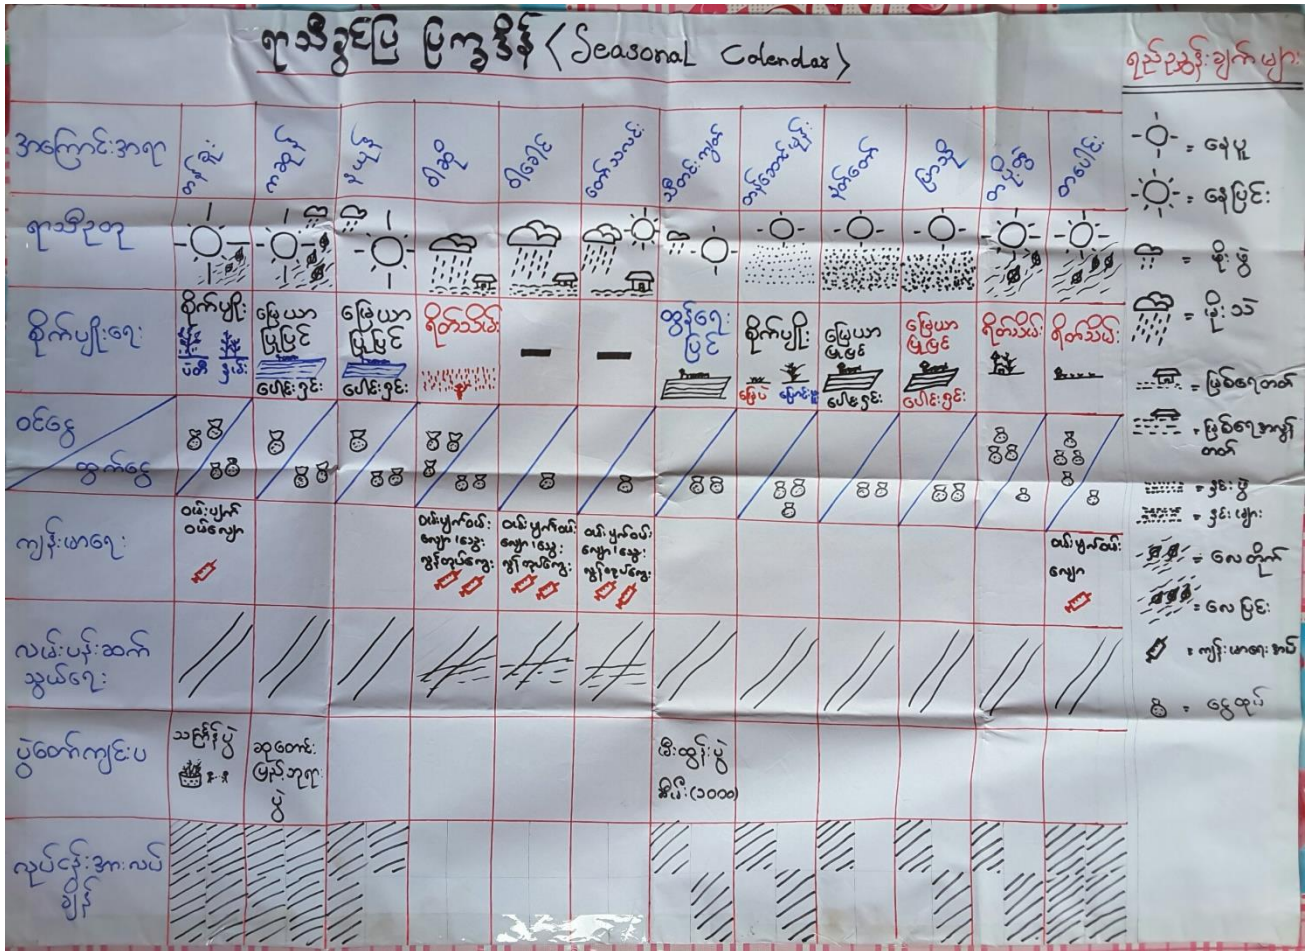 ရာသီခွင်ပြ ပြက္ခဒိန် (Seasonal Calendar)
ရည်ညွှန်းချက်များ
အကြောင်းအရာ
တန်ခူး
ကဆုန်
နယုန်
ဝါဆို
ဝါခေါင်
တော်သလင်း
သီတင်းကျွတ်
တန်ဆောင်မုန်း
နတ်တော်
ပြာသို
တပို့တွဲ
တပေါင်း
ရာသီဥတု
စိုက်ပျိုးရေး
စိုက်ပျိုး
ပဲတီ နှမ်း
မြေယာ
ပြုပြင်
ပေါင်းရှင်း
မြေယာ
ပြုပြင်
ပေါင်းရှင်း
ရိတ်သိမ်း
ထွန်ရေး
ပြင်
စိုက်ပျိုး
မြေပဲ ပြောင်းဖူး
မြေယာ
ပြုပြင်
ပေါင်းရှင်း
မြေယာ
ပြုပြင်
ပေါင်းရှင်း
ရိတ်သိမ်း
ရိတ်သိမ်း
ဝင်ငွေ
ထွက်ငွေ
ကျန်းမာရေး
ဝမ်းပျက်
ဝမ်လျော
ဝမ်းပျက်ဝမ်း
လျော၊သွေး
လွန်တုပ်ကွေး
ဝမ်းပျက်ဝမ်း
လျော၊သွေး
လွန်တုပ်ကွေး
ဝမ်းပျက်ဝမ်း
လျော၊သွေး
လွန်တုပ်ကွေး
ဝမ်းပျက်ဝမ်း
လျော
လမ်းပန်းဆက်
သွယ်ရေး
ပွဲတော်ကျင်းပ
သင်္ကြန်ပွဲ
ဆုတောင်း
ပြည့်ဘုရား
ပွဲ
မီးထွန်းပွဲ
ဆီမီး(၁၀၀၀)
လုပ်ငန်းအားလပ်
ချိန်
= နေပူ
= နေပြင်း
= မိုးဖွဲ
= မိုးသဲ
= မြစ်ရေတတ်
= မြစ်ရေအလွန်
တတ်
= နှင်းဖွဲ
= နှင်းများ
= လေတိုက်
= လေပြင်း
= ကျန်းမာရေးအပ်
= ငွေထုပ်